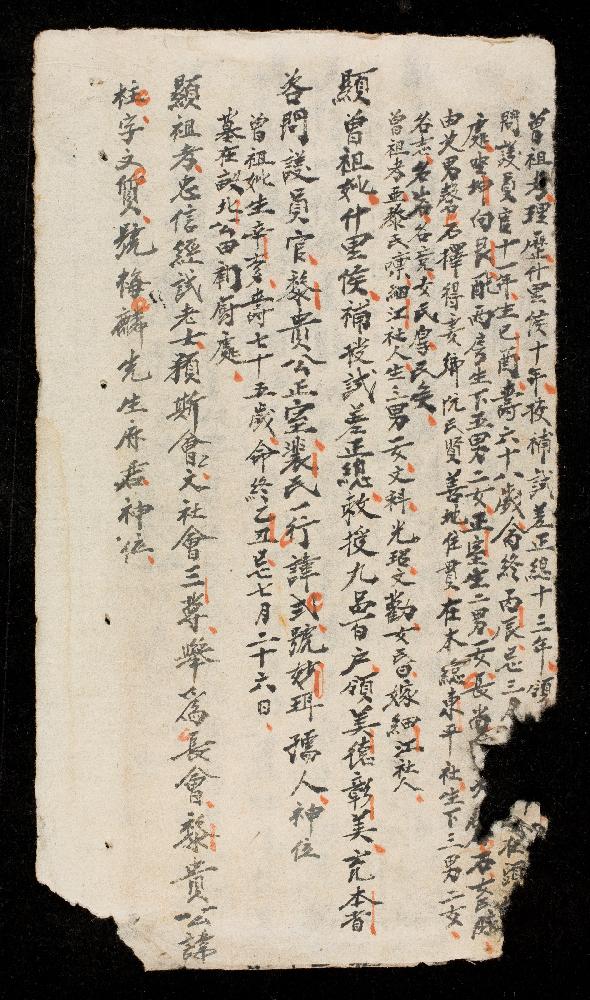 曾祖考理歷什里侯十年復補試差正總十二年領
問護員官十年生己酉壽六十八歲命終丙辰忌三月
處坐坤向艮配兩房生下五男二女正室生二男一女長
由次男啓石擇得亥鄉阮氏賢善地住貫在本總東平社生下三男二女
名志名岩名亥女氏厚氏矣
曾祖考亞黎氏諱細江社人生三男一女文科光珆文勸女氏昏嫁細江社人
顯曾祖妣什里侯補授試差正總敕授九品百戶領美德彰美充本省
各問護員官黎貴公正室裴氏一行諱弍號妙珥孺人神位
曾祖妣生辛亥壽七十五歲命終乙丑忌七月二十六日
墓在該北公田制厨處
顯祖考忠信經試老士預斯會文社會三尊舉為長會黎貴公諱
柱字文質號梅麟先生府君神位